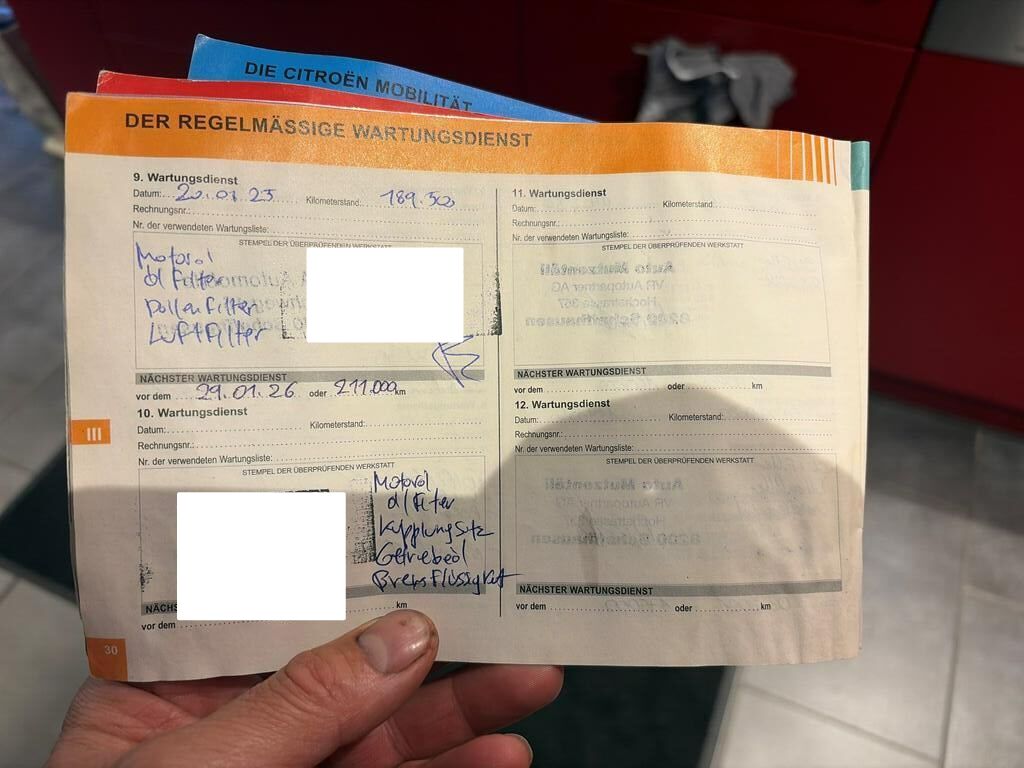 DIE CITROËN MOBILITÄT
DER REGELMÄSSIGE WARTUNGSDIENST
9. Wartungsdienst
Datum: 20.01.25 Kilometerstand: 189.500
Rechnungsnr.:
Nr. der verwendeten Wartungsliste:
STEMPEL DER ÜBERPRÜFENDEN WERKSTATT
Motoröl
ölFilter
PollenFilter
LuftFilter
NÄCHSTER WARTUNGSDIENST
vor dem 29.01.26 oder 211.000 km
10. Wartungsdienst
Datum: Kilometerstand:
Rechnungsnr.:
Nr. der verwendeten Wartungsliste:
STEMPEL DER ÜBERPRÜFENDEN WERKSTATT
Motoröl
ölFilter
KupplungSitz
Getriebeöl
BremsFlüssigkeit
NÄCHS
vor dem km
11. Wartungsdienst
Datum: Kilometerstand:
Rechnungsnr.:
Nr. der verwendeten Wartungsliste:
STEMPEL DER ÜBERPRÜFENDEN WERKSTATT
NÄCHSTER WARTUNGSDIENST
vor dem oder km
12. Wartungsdienst
Datum: Kilometerstand:
Rechnungsnr.:
Nr. der verwendeten Wartungsliste:
STEMPEL DER ÜBERPRÜFENDEN WERKSTATT
NÄCHSTER WARTUNGSDIENST
vor dem oder km
III
30